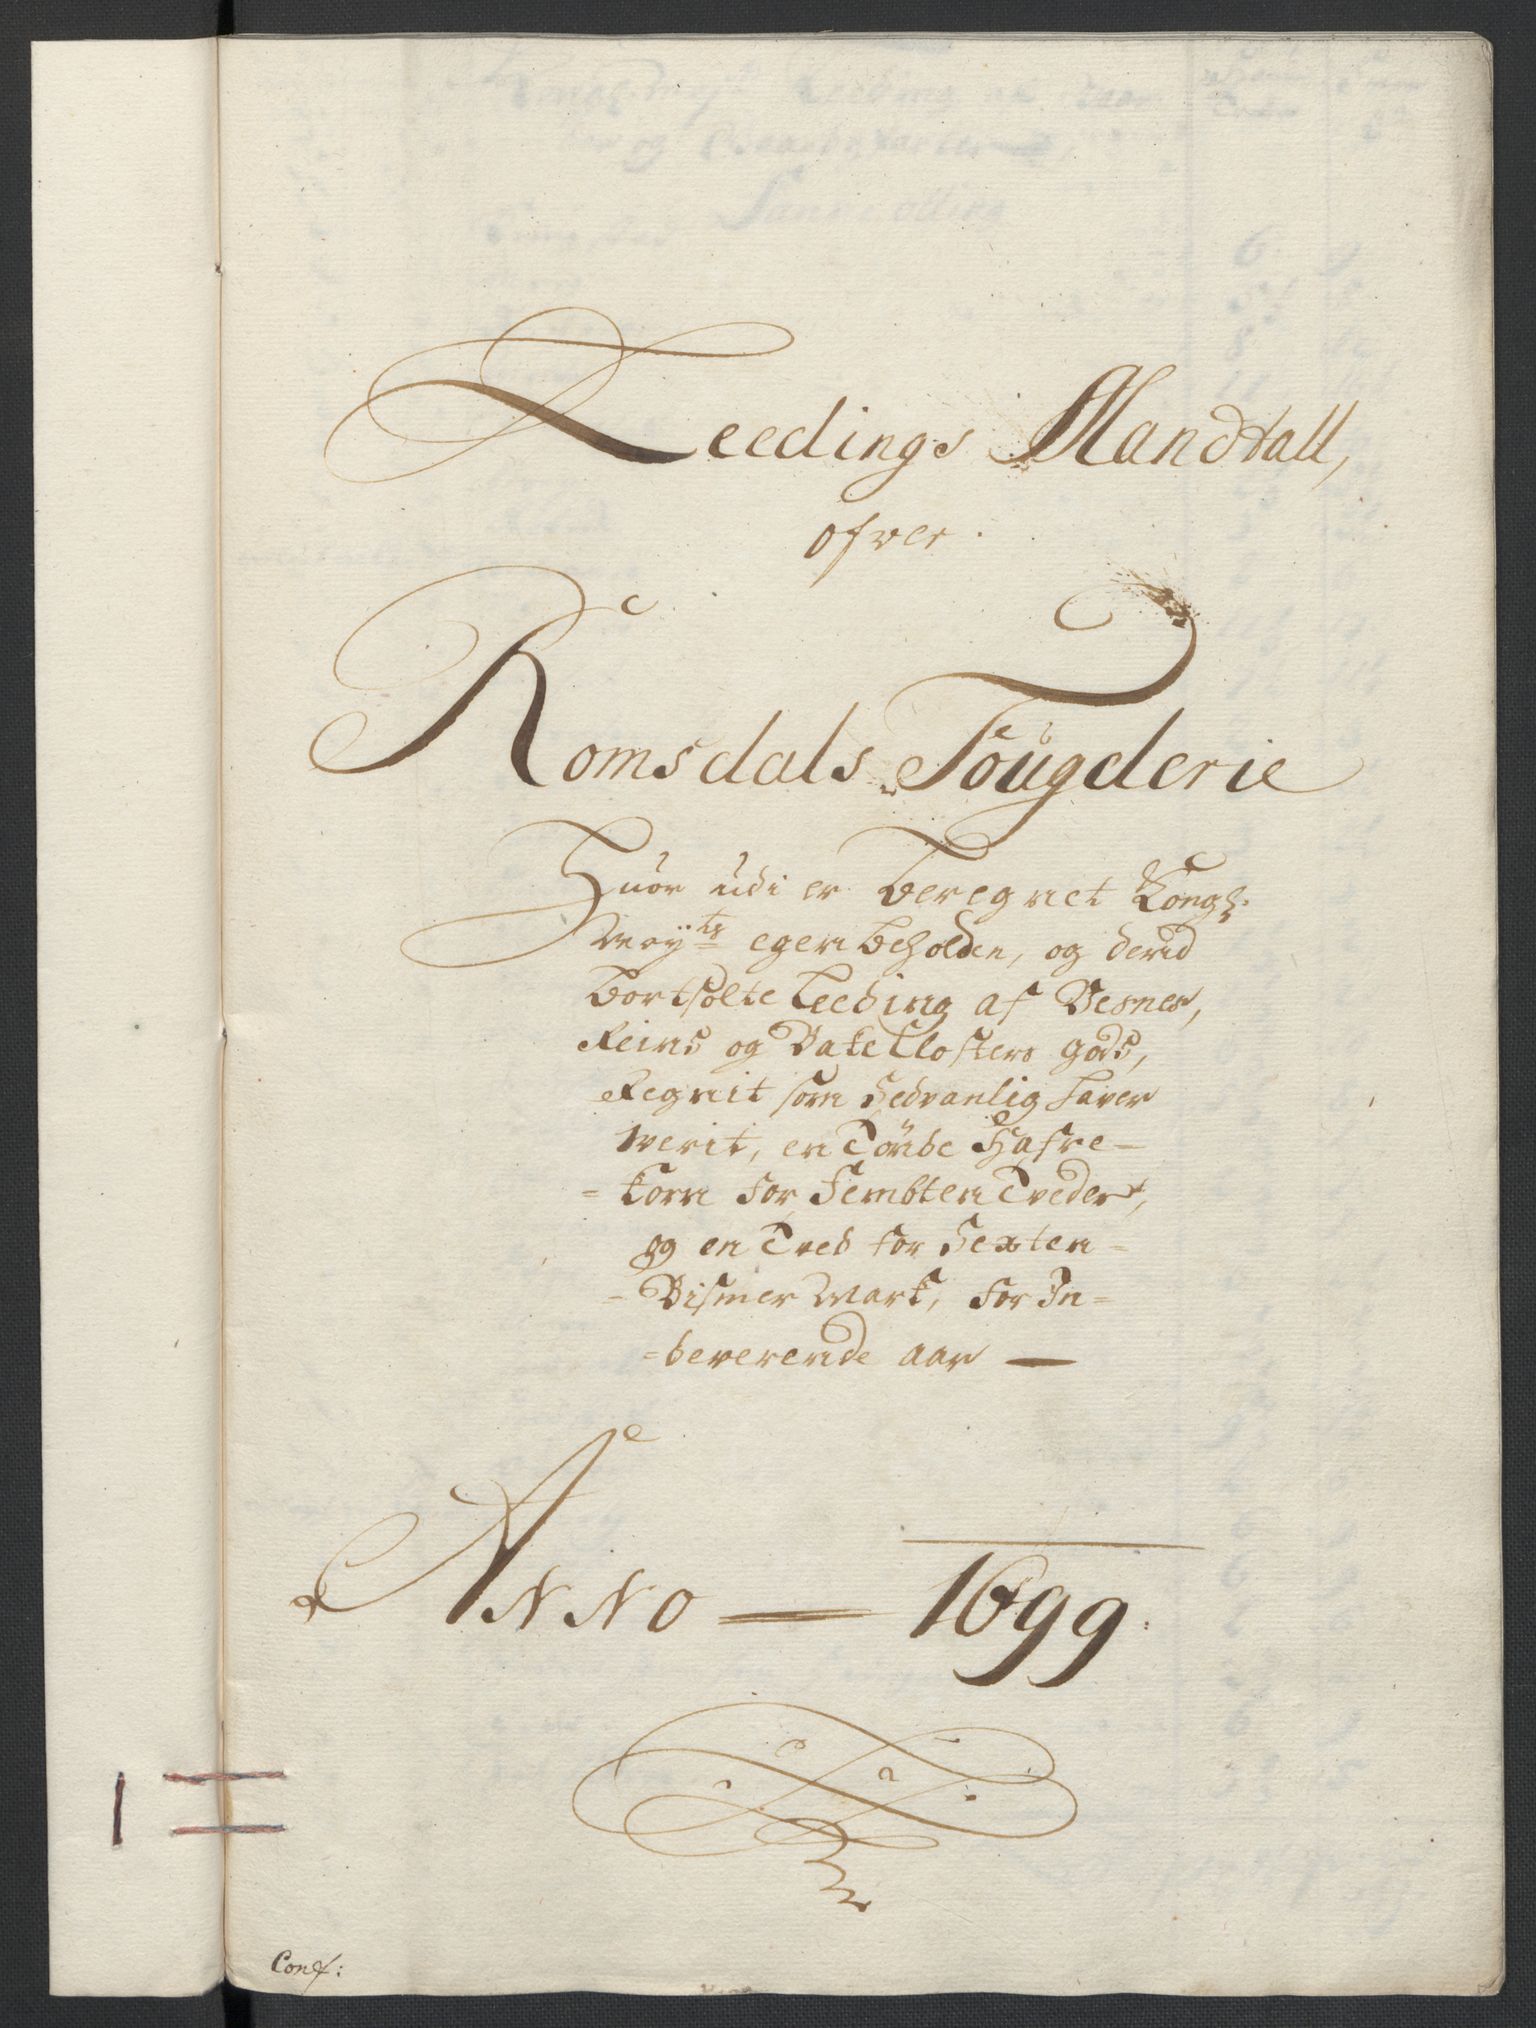 Leedings Mandtall,
ofver
Romsdals Fougderie
Huor udi er beregnet Kongl:
May:ts egen beholden, og derid
bortsolte Leeding af Vesnes,
Reins og Bakeklosters gods,
Regnit som sedvanlig haver
verit, en Tönde Hafre-
= korn for Fembten Tveder,
og en Tved for Sexten =
= Bismer Mark, for In =
= deverende aar —
ANNO — 1699.
Conf: